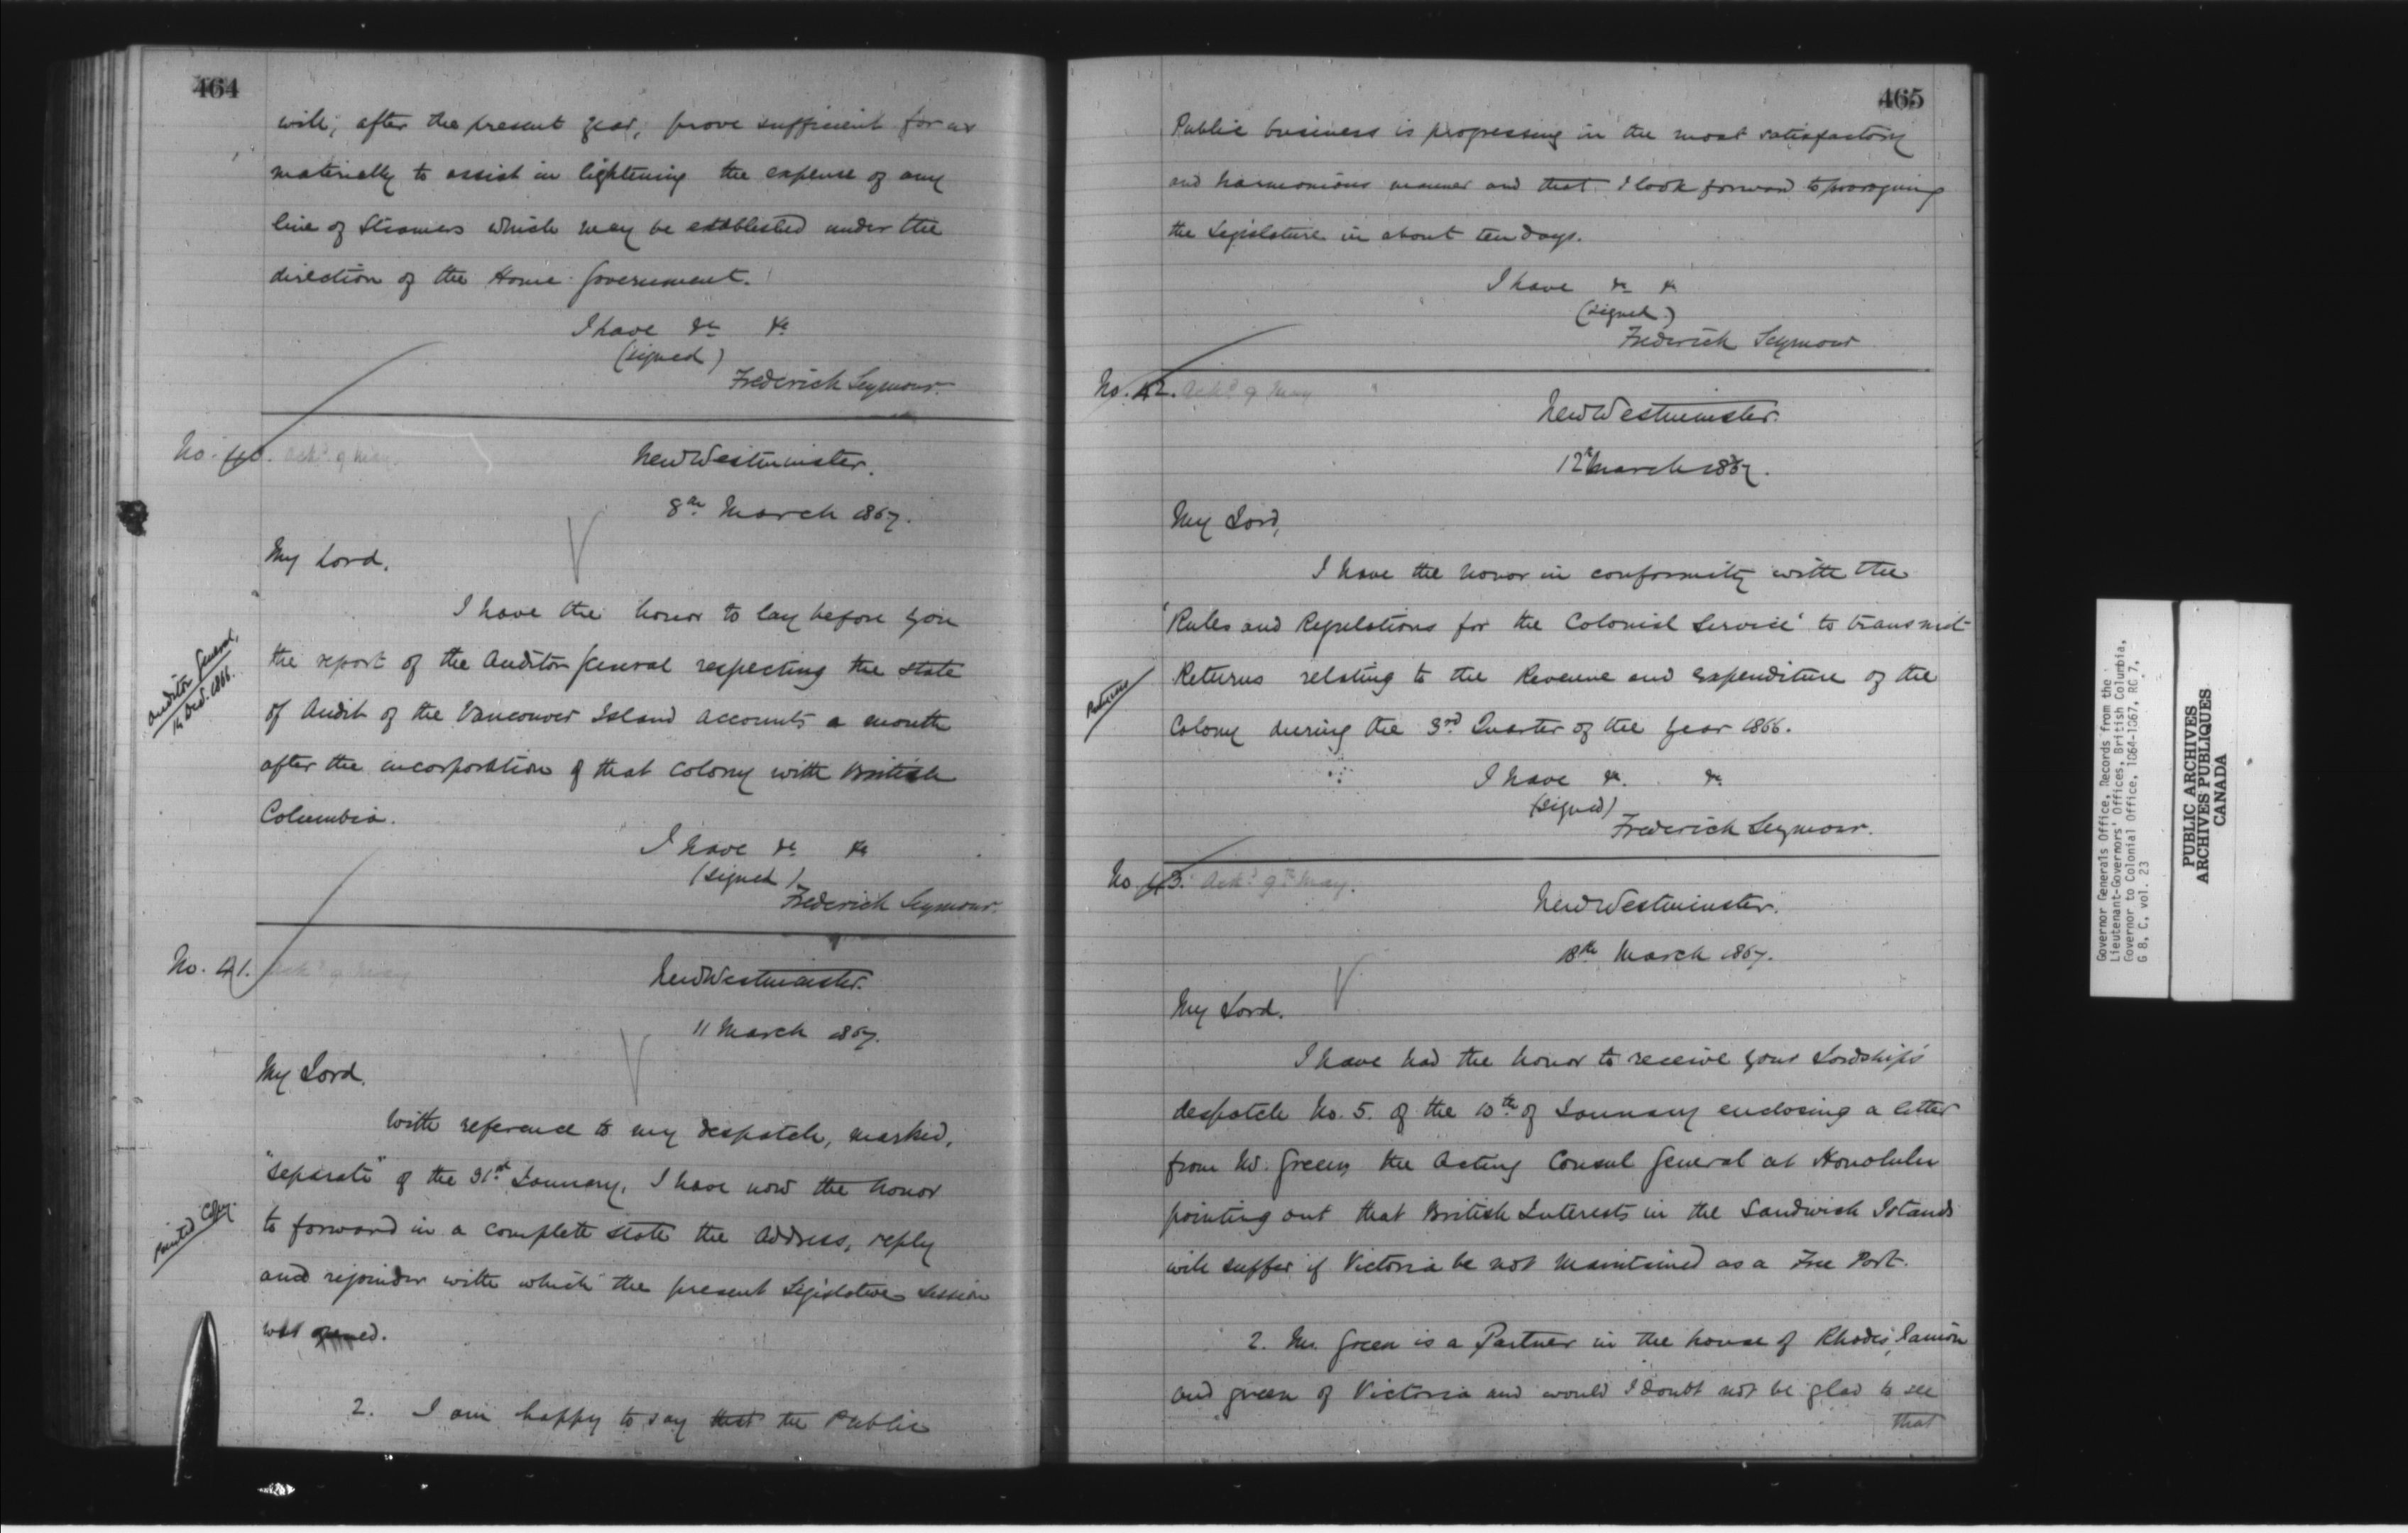 464
will, after the present year, prove sufficient for us
materially to assist in lightening the expense of any
line of Steamers which may be established under the
direction of the Home Government.
I have &c &c
(signed)
Frederick Seymour.
No. 40. Ackd. 9 May.
New Westminster.
8th March 1867.
My Lord,
I have the honor to lay before you
Auditor General,
Decr. 1866.
the report of the Auditor General respecting the state
of Audit of the Vancouver Island accounts a month
after the incorporation of that Colony with British
Columbia.
I have &c &c
(signed)
Frederick Seymour.
No. 41. Ackd. 9 May
New Westminster.
11 March 1867.
My Lord,
With reference to my despatch, marked,
"Separate" of the 31st January, I have now the honor
Printed Copy.
to forward in a complete state the Address, reply
and rejoinder with which the present Legislative Session
was opened.
2. I am happy to say that the Public
465
Public business is progressing in the most satisfactory
and harmonious manner and that I look forward to proroguing
the Legislature in about ten days.
I have &c &c
(signed)
Frederick Seymour
No. 42. Ackd. 9 May
New Westminster.
12th March 1867.
My Lord,
I have the honor in conformity with the
'Rules and Regulations for the Colonial Service' to transmit
Returns
Returns relating to the Revenue and Expenditure of the
Colony during the 3rd Quarter of the year 1866.
I have &c. &c.
(signed)
Frederick Seymour.
No. 43. Ackd. 9th May.
New Westminster.
18th March 1867.
My Lord.
I have had the honor to receive your Lordship's
despatch No. 5. of the 10th of January enclosing a letter
from Mr. Green the Acting Consul General at Honolulu
pointing out that British Interests in the Sandwich Islands
will suffer if Victoria be not maintained as a Free Port.
2. Mr. Green is a Partner in the house of Rhodes, Janion
and Green of Victoria and would I doubt not be glad to see
that
Governor Generals Office, Records from the
Lieutenant-Governors' Offices, British Columbia,
Governor to Colonial Office, 1864-1867, RG 7,
G 8, C, vol. 23
PUBLIC ARCHIVES
ARCHIVES PUBLIQUES
CANADA